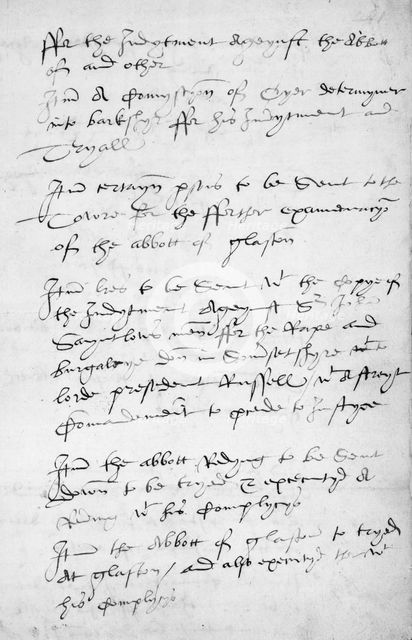 ffor the Indytment Ageynst the Abbott
off and other
Itm A Comyssyon off Oyer determyner
into barkshyr ffor his Indytment and
Tryall
Itm certayn psons to be Sent to the
Towre for the fferther examenacyon
off the abbott of glaston
Itm lres to be Sent wt the copye of
the Indytment Ageynst Sr John
Sayntlows men ffor the Rape and
burgalerye don in Somersetshyre
lorde president Russell wt A streyt
Comandement to procede to Justyce
Itm the abbott Redyng to be Sent
down to be tryed & executyd At
Redyng wt his Complycys
Itm the Abbott of glaston to tryed
At glaston / and also executyd
his Complycys